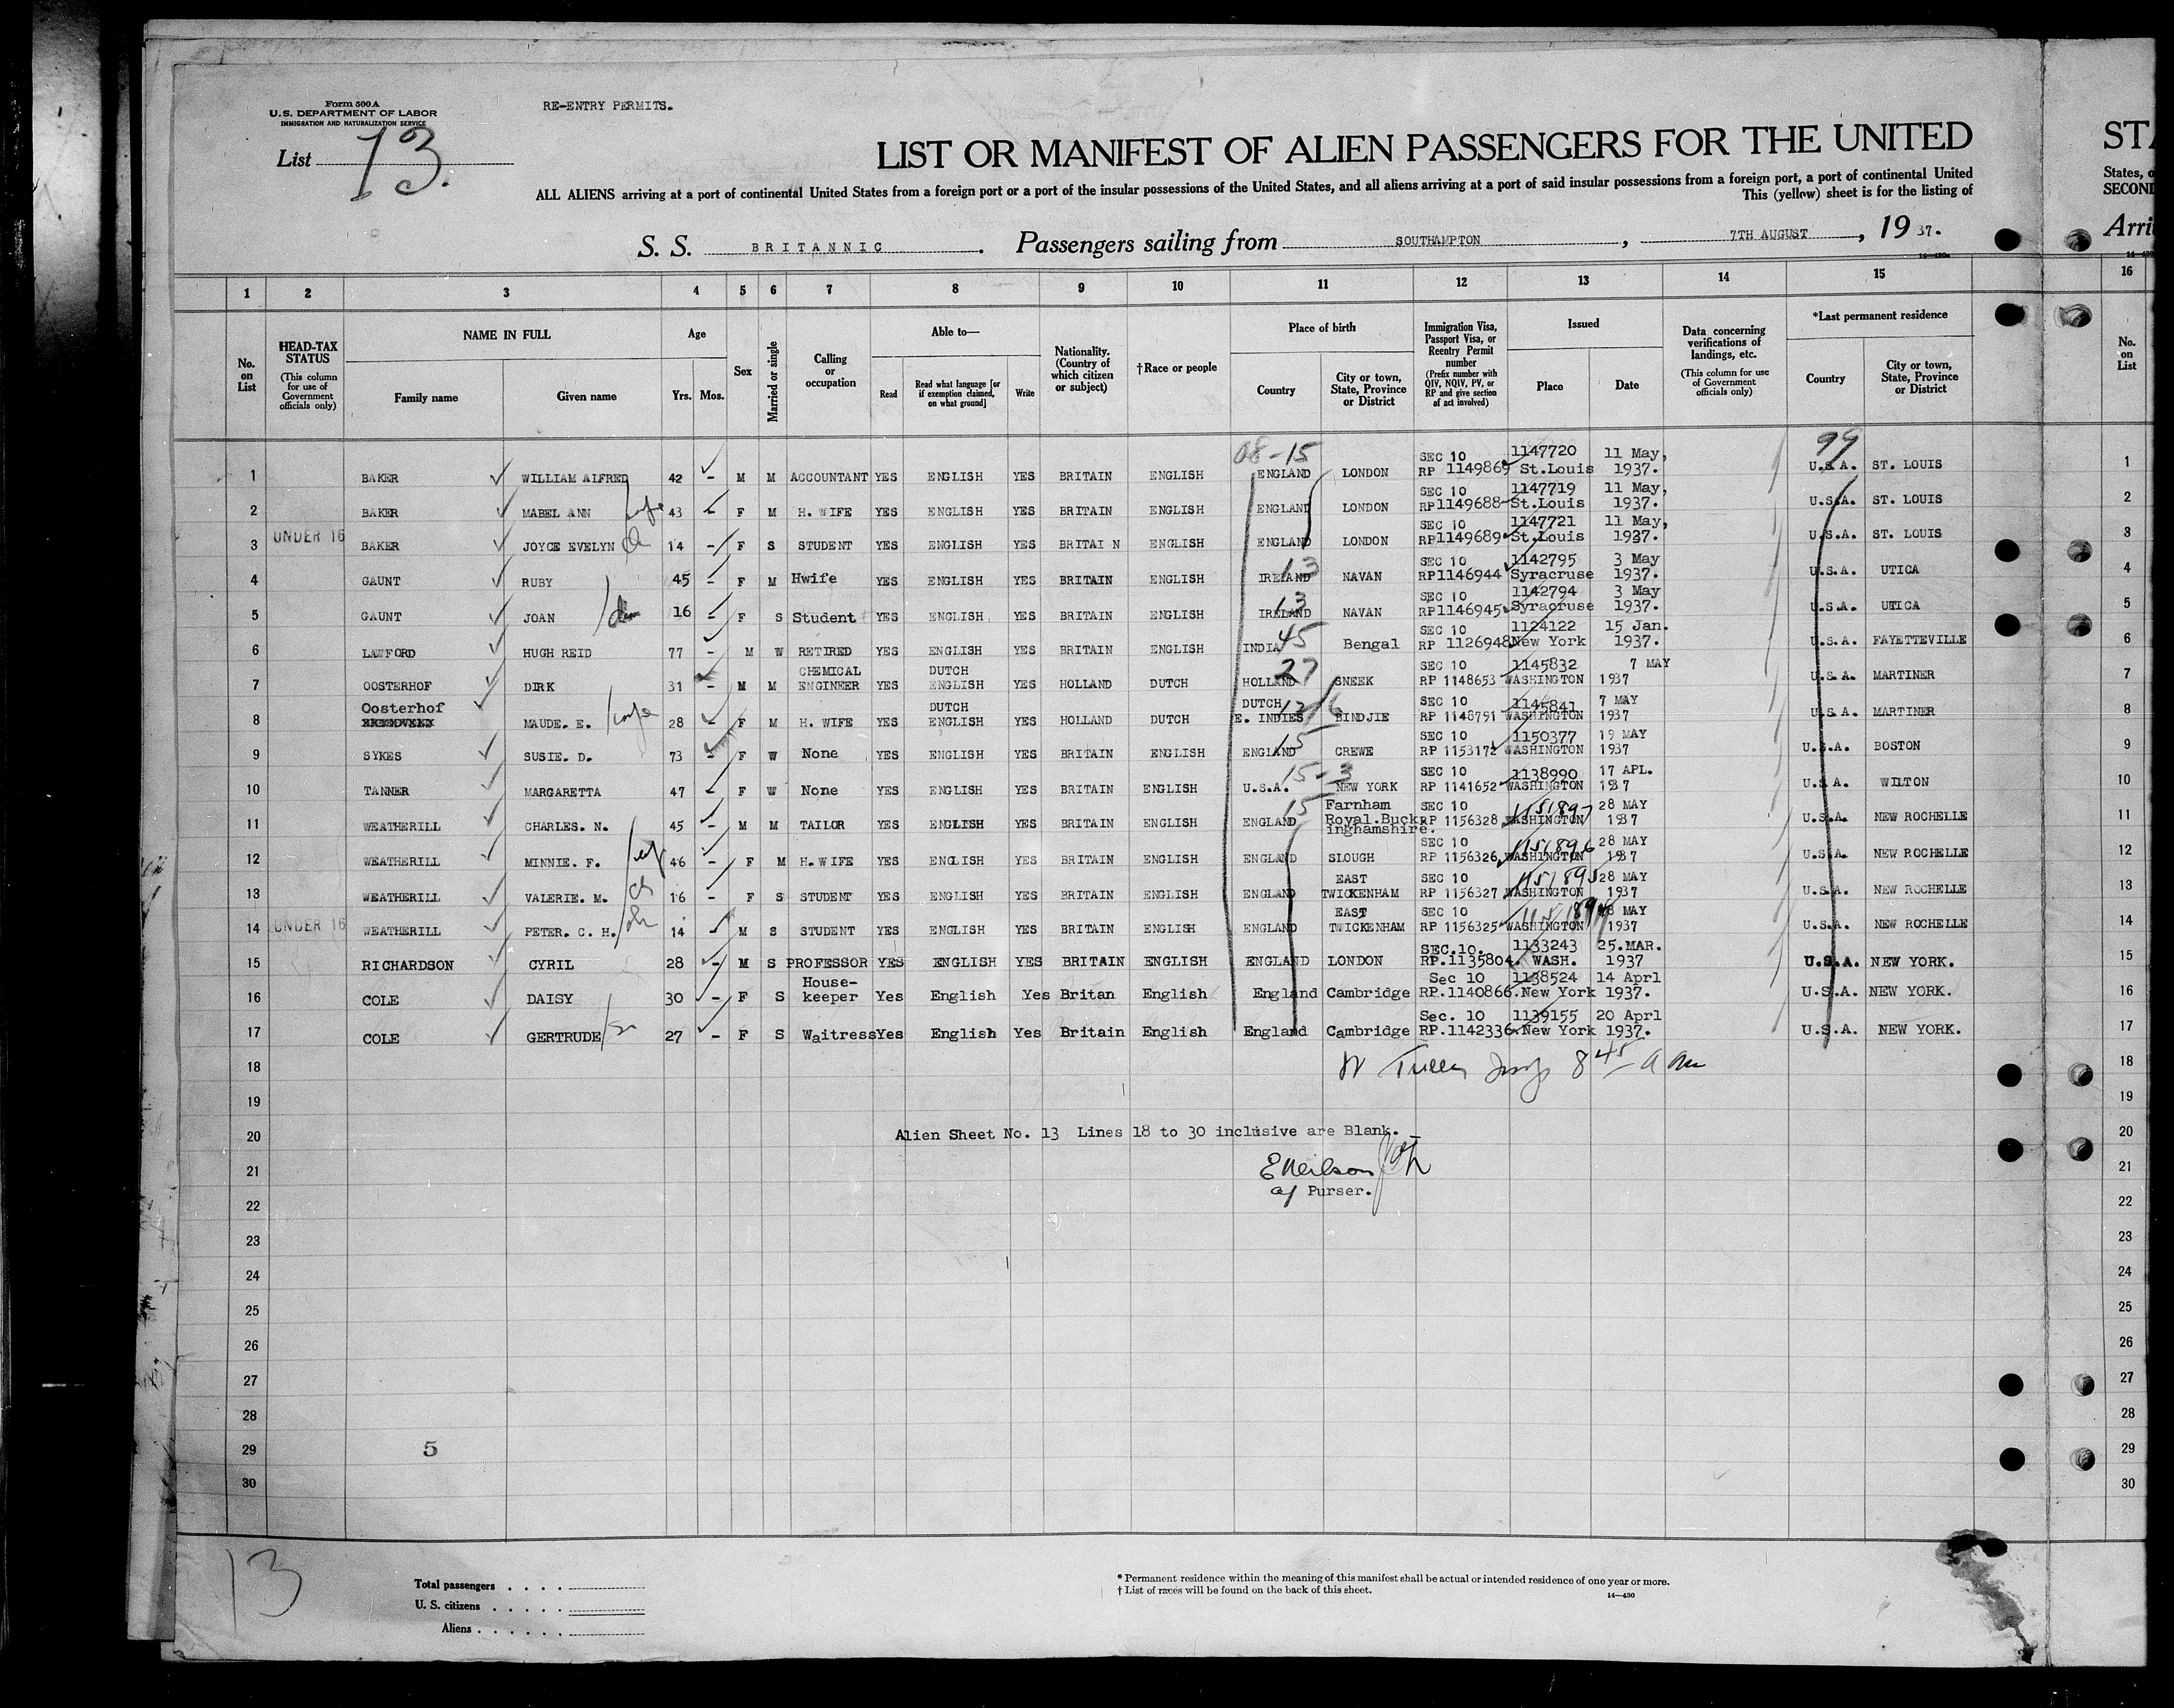 Form 500 A
U.S. DEPARTMENT OF LABOR
IMMIGRATION AND NATURALIZATION SERVICE
RE-ENTRY PERMITS.
List 13.
LIST OR MANIFEST OF ALIEN PASSENGERS FOR THE UNITED
STA
ALL ALIENS arriving at a port of continental United States from a foreign port or a port of the insular possessions of the United States, and all aliens arriving at a port of said insular possessions from a foreign port, a port of continental United
States, o
This (yellow) sheet is for the listing of
SECOND
S. S. BRITANNIC. Passengers sailing from SOUTHAMPTON, 7TH AUGUST, 19 37.
Arri
14—430
1 2 3 4 5 6 7 8 9 10 11 12 13 14 15 16
No. on List
HEAD-TAX STATUS (This column for use of Government officials only)
NAME IN FULL Family name Given name
Age Yrs. Mos.
Sex
Married or single
Calling or occupation
Able to— Read Read what language [or if exemption claimed, on what ground] Write
Nationality. (Country of which citizen or subject)
†Race or people
Place of birth Country City or town, State, Province or District
Immigration Visa, Passport Visa, or Reentry Permit number (Prefix number with QIV, NQIV, PV, or RP and give section of act involved)
Issued Place Date
Data concerning verifications of landings, etc. (This column for use of Government officials only)
*Last permanent residence Country City or town, State, Province or District
No. on List
08-15 99
1 BAKER WILLIAM ALFRED 42 - M M ACCOUNTANT YES ENGLISH YES BRITAIN ENGLISH ENGLAND LONDON SEC 10 RP 1149869 1147720 St.Louis 11 May, 1937. U.S.A. ST. LOUIS 1
2 BAKER MABEL ANN wife 43 - F M H. WIFE YES ENGLISH YES BRITAIN ENGLISH ENGLAND LONDON SEC 10 RP1149688 1147719 St.Louis 11 May, 1937. U.S.A. ST. LOUIS 2
3 UNDER 16 BAKER JOYCE EVELYN 14 - F S STUDENT YES ENGLISH YES BRITAI N ENGLISH ENGLAND LONDON SEC 10 RP1149689 1147721 St.Louis 11 May, 1937. U.S.A. ST. LOUIS 3
4 GAUNT RUBY 45 - F M Hwife YES ENGLISH YES BRITAIN ENGLISH IRELAND 13 NAVAN SEC 10 RP1146944 1142795 Syracruse 3 May 1937. U.S.A. UTICA 4
5 GAUNT JOAN 16 - F S Student YES ENGLISH YES BRITAIN ENGLISH IRELAND 13 NAVAN SEC 10 RP1146945 1142794 Syracruse 3 May 1937. U.S.A. UTICA 5
6 LAWFORD HUGH REID 77 - M W RETIRED YES ENGLISH YES BRITAIN ENGLISH INDIA 45 Bengal SEC 10 RP 1126948 1124122 New York 15 Jan. 1937. U.S.A. FAYETTEVILLE 6
7 OOSTERHOF DIRK 31 - M M CHEMICAL ENGINEER YES DUTCH ENGLISH YES HOLLAND DUTCH HOLLAND 27 SNEEK SEC 10 RP 1148653 1145832 WASHINGTON 7 MAY 1937 U.S.A. MARTINER 7
8 Oosterhof MAUDE. E. wife 28 - F M H. WIFE YES DUTCH ENGLISH YES HOLLAND DUTCH DUTCH E. INDIES BINDJIE SEC 10 RP 1148791 1145841 WASHINGTON 7 MAY 1937 U.S.A. MARTINER 8
9 SYKES SUSIE. D. 73 - F W None YES ENGLISH YES BRITAIN ENGLISH ENGLAND 15 CREWE SEC 10 RP 1153172 1150377 WASHINGTON 19 MAY 1937 U.S.A. BOSTON 9
10 TANNER MARGARETTA 47 - F W None YES ENGLISH YES BRITAIN ENGLISH U.S.A. 15-3 NEW YORK SEC 10 RP 1141652 1138990 WASHINGTON 17 APL. 1937 U.S.A. WILTON 10
11 WEATHERILL CHARLES. N. 45 - M M TAILOR YES ENGLISH YES BRITAIN ENGLISH ENGLAND 15 Farnham Royal.Buckinghamshire. SEC 10 RP 1156328 1151897 WASHINGTON 28 MAY 1937 U.S.A. NEW ROCHELLE 11
12 WEATHERILL MINNIE. F. wf 46 - F M H. WIFE YES ENGLISH YES BRITAIN ENGLISH ENGLAND SLOUGH SEC 10 RP 1156326 1151896 WASHINGTON 28 MAY 1937 U.S.A. NEW ROCHELLE 12
13 WEATHERILL VALERIE. M. ch 16 - F S STUDENT YES ENGLISH YES BRITAIN ENGLISH ENGLAND EAST TWICKENHAM SEC 10 RP 1156327 1151895 WASHINGTON 28 MAY 1937 U.S.A. NEW ROCHELLE 13
14 UNDER 16 WEATHERILL PETER. C. H. ch 14 - M S STUDENT YES ENGLISH YES BRITAIN ENGLISH ENGLAND EAST TWICKENHAM SEC 10 RP 1156325 1151894 WASHINGTON 28 MAY 1937 U.S.A. NEW ROCHELLE 14
15 RICHARDSON CYRIL 28 - M S PROFESSOR YES ENGLISH YES BRITAIN ENGLISH ENGLAND LONDON SEC.10. RP.1135804. 1133243 WASH. 25.MAR. 1937 U.S.A. NEW YORK. 15
16 COLE DAISY 30 - F S House-keeper Yes English Yes Britan English England Cambridge Sec 10 RP.1140866. 1138524 New York 14 Aprl 1937. U.S.A. NEW YORK. 16
17 COLE GERTRUDE 27 - F S Waitress Yes English Yes Britain English England Cambridge Sec. 10 RP.1142336. 1139155 New York 20 Aprl 1937. U.S.A. NEW YORK. 17
18 8 45 a m 18
19 19
20 Alien Sheet No. 13 Lines 18 to 30 inclusive are Blank. 20
21 E Neilson 21
22 Purser. 22
23 23
24 24
25 25
26 26
27 27
28 28
29 5 29
30 30
13
Total passengers . . . .
U. S. citizens . . . . .
Aliens . . . . . .
* Permanent residence within the meaning of this manifest shall be actual or intended residence of one year or more.
† List of races will be found on the back of this sheet.
14—430